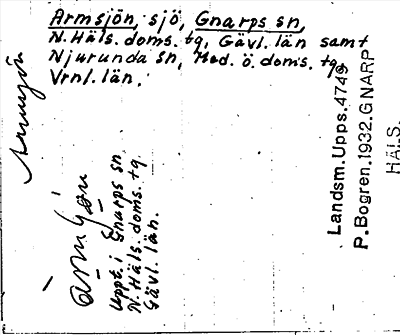 Armsjön, sjö, Gnarps sn,
N. Häls. doms. tg, Gävl. län samt
Njurunda sn, Med. ö. doms. tg,
Vrnl. län.
Armsjön
Uppt. i Gnarps sn
N. Häls. doms. tg.
Gävl. län.
Landsm. Upps. 4749
P. Bogren. 1932. GNARP
HÄLS.